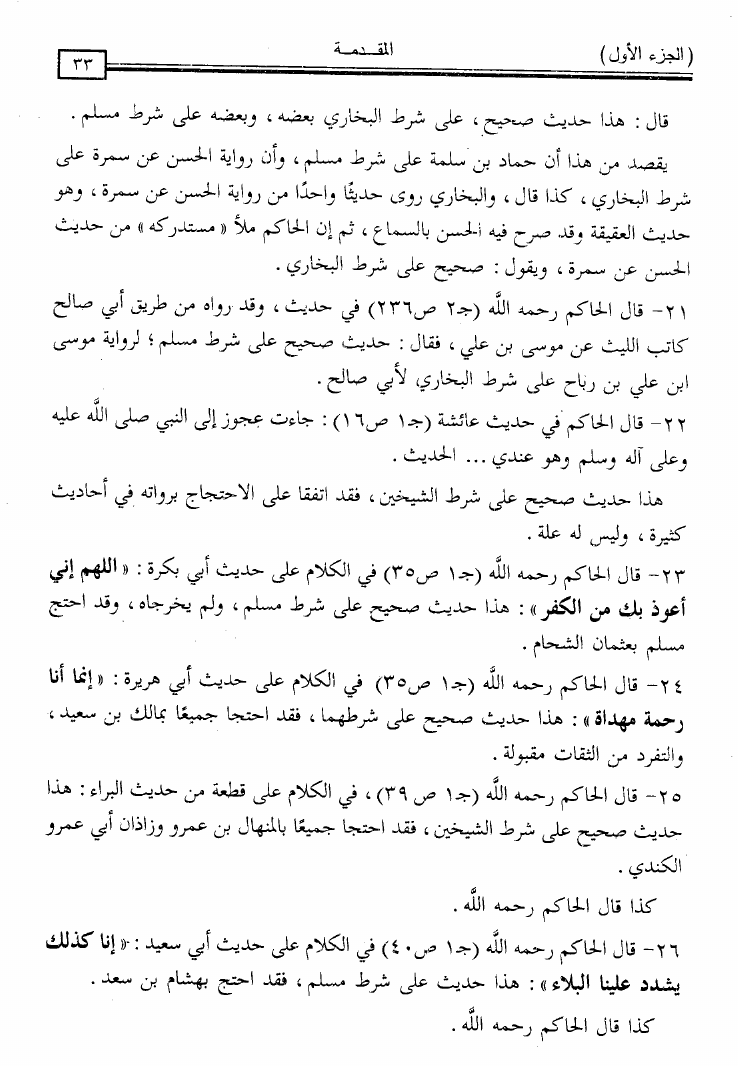 (الجزء الأول)
المقـدمـة
٣٣
قال : هذا حديث صحيح ، على شرط البخاري بعضه ، وبعضه على شرط مسلم .
يقصد من هذا أن حماد بن سلمة على شرط مسلم ، وأن رواية الحسن عن سمرة على
شرط البخاري ، كذا قال ، والبخاري روى حديثًا واحدًا من رواية الحسن عن سمرة ، وهو
حديث العقيقة وقد صرح فيه الحسن بالسماع ، ثم إن الحاكم ملأ « مستدركه » من حديث
الحسن عن سمرة ، ويقول : صحيح على شرط البخاري .
٢١- قال الحاكم رحمه اللَّه (جـ٢ ص٢٣٦) في حديث ، وقد رواه من طريق أبي صالح
كاتب الليث عن موسى بن علي ، فقال : حديث صحيح على شرط مسلم ؛ لرواية موسى
ابن علي بن رباح على شرط البخاري لأبي صالح .
٢٢- قال الحاكم في حديث عائشة (جـ١ ص١٦) : جاءت عجوز إلى النبي صلى اللَّه عليه
وعلى آله وسلم وهو عندي ... الحديث .
هذا حديث صحيح على شرط الشيخين ، فقد اتفقا على الاحتجاج برواته في أحاديث
كثيرة ، وليس له علة .
٢٣- قال الحاكم رحمه اللَّه (جـ١ ص٣٥) في الكلام على حديث أبي بكرة : « اللهم إني
أعوذ بك من الكفر » : هذا حديث صحيح على شرط مسلم ، ولم يخرجاه ، وقد احتج
مسلم بعثمان الشحام .
٢٤- قال الحاكم رحمه اللَّه (جـ١ ص٣٥) في الكلام على حديث أبي هريرة : « إنما أنا
رحمة مهداة » : هذا حديث صحيح على شرطهما ، فقد احتجا جميعًا بمالك بن سعيد ،
والتفرد من الثقات مقبولة .
٢٥- قال الحاكم رحمه اللَّه (جـ١ ص٣٩) ، في الكلام على قطعة من حديث البراء : هذا
حديث صحيح على شرط الشيخين ، فقد احتجا جميعًا بالمنهال بن عمرو وزاذان أبي عمرو
الكندي .
كذا قال الحاكم رحمه اللَّه .
٢٦- قال الحاكم رحمه اللَّه (جـ١ ص٤٠) في الكلام على حديث أبي سعيد : « إنا كذلك
يشدد علينا البلاء » : هذا حديث على شرط مسلم ، فقد احتج بهشام بن سعد .
كذا قال الحاكم رحمه اللَّه .